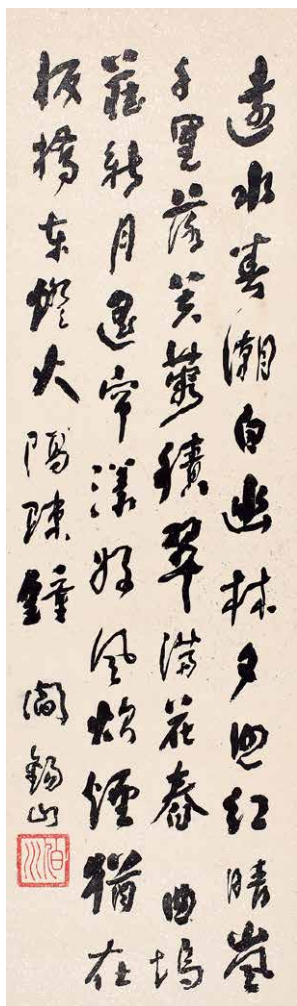 遠水春潮白幽林夕照紅晴嵐
千里落芙蓉積翠滿花曲塢
藏新月遥帘漾好風炊煙猶在
板橋東燈火隔疎鐘
閻錫山
伯川